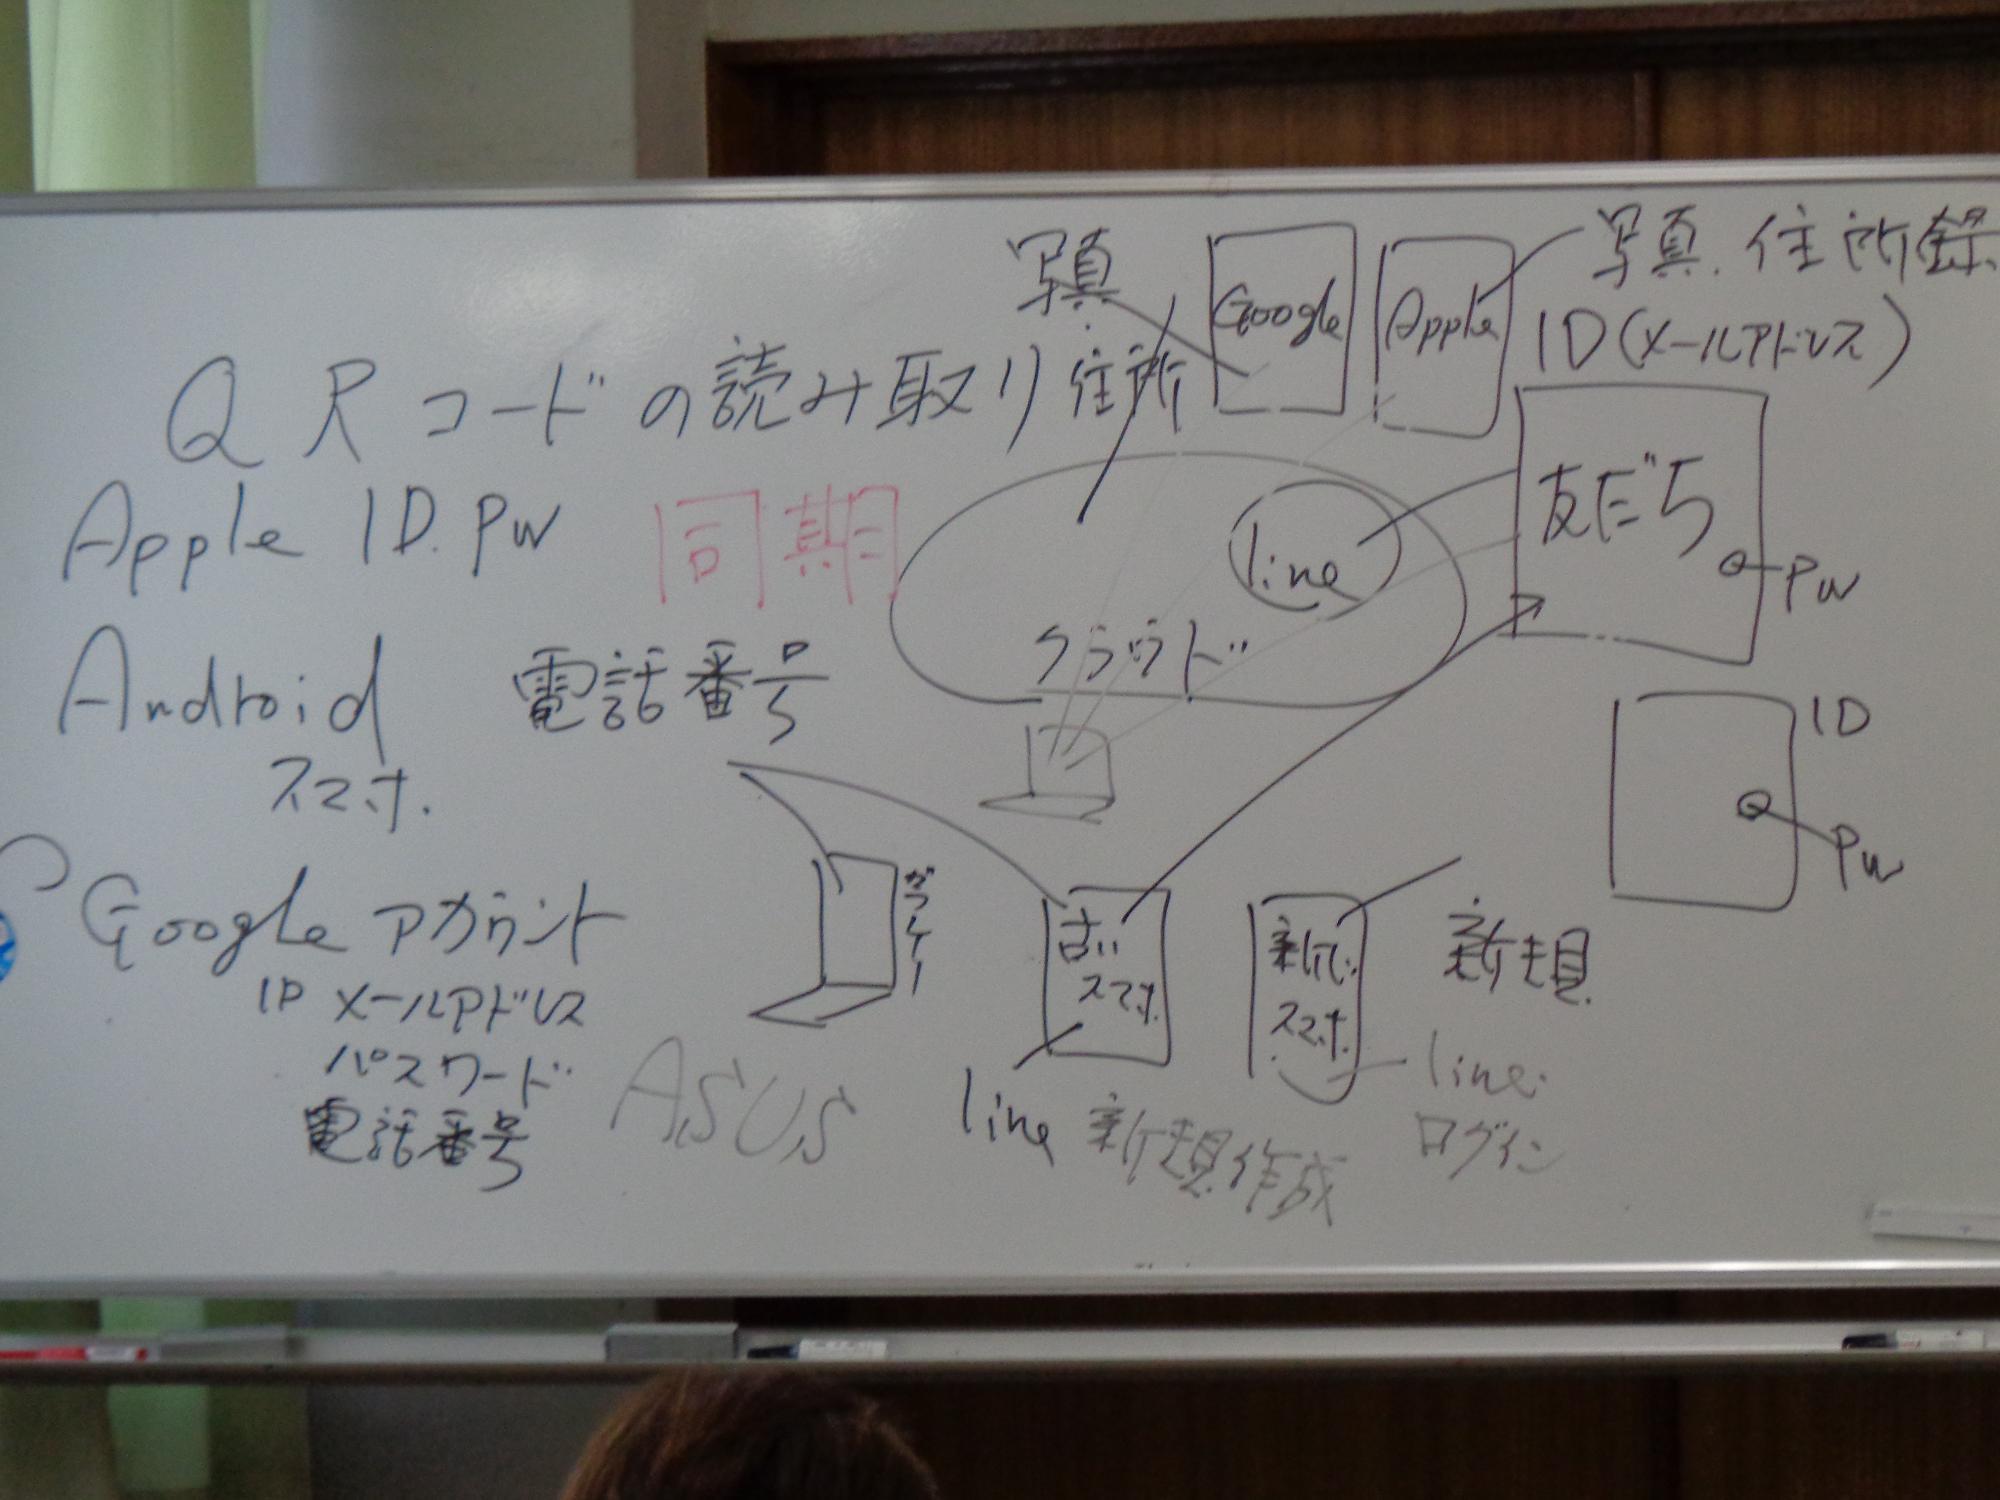 QRコードの読み取り
Apple ID. PW
同期
Android
スマホ.
電話番号
Google アカウント
ID メールアドレス
パスワード
電話番号
ASUS
写真
住所
Google
Apple
写真. 住所録
ID(メールアドレス)
line
クラウド
友だち
PW
ID
PW
ガラケー
古い
スマホ
新しい
スマホ
新規
line 新規作成
line.
ログイン